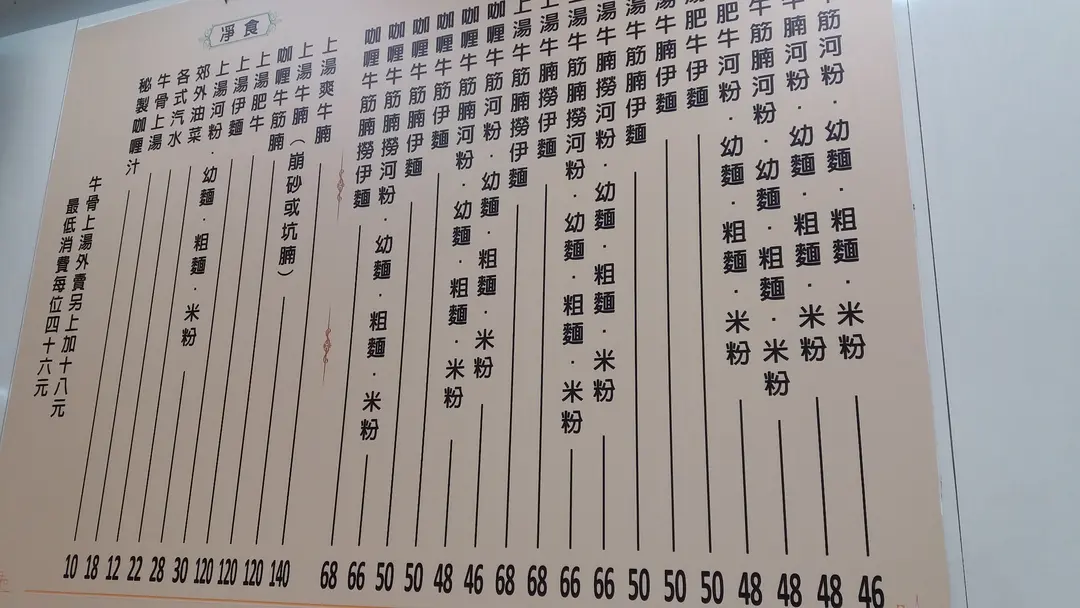 牛筋河粉．幼麵．粗麵．米粉 46
牛腩河粉．幼麵．粗麵．米粉 48
牛筋腩河粉．幼麵．粗麵．米粉 48
肥牛河粉．幼麵．粗麵．米粉 48
肥牛伊麵 50
牛腩伊麵 50
湯牛筋腩伊麵 50
湯牛腩撈河粉．幼麵．粗麵．米粉 66
上湯牛筋腩撈河粉．幼麵．粗麵．米粉 66
上湯牛腩撈伊麵 68
上湯牛筋腩撈伊麵 68
咖喱牛筋河粉．幼麵．粗麵．米粉 46
咖喱牛筋腩河粉．幼麵．粗麵．米粉 48
咖喱牛筋伊麵 50
咖喱牛筋腩伊麵 50
咖喱牛筋腩撈河粉．幼麵．粗麵．米粉 66
咖喱牛筋腩撈伊麵 68
淨食
上湯爽牛腩 140
上湯牛腩（崩砂或坑腩） 120
咖喱牛筋腩 120
上湯肥牛 120
上湯伊麵 30
上湯河粉．幼麵．粗麵．米粉 28
郊外油菜 22
各式汽水 12
牛骨上湯 18
秘製咖喱汁 10
牛骨上湯外賣另上加十八元
最低消費每位四十六元